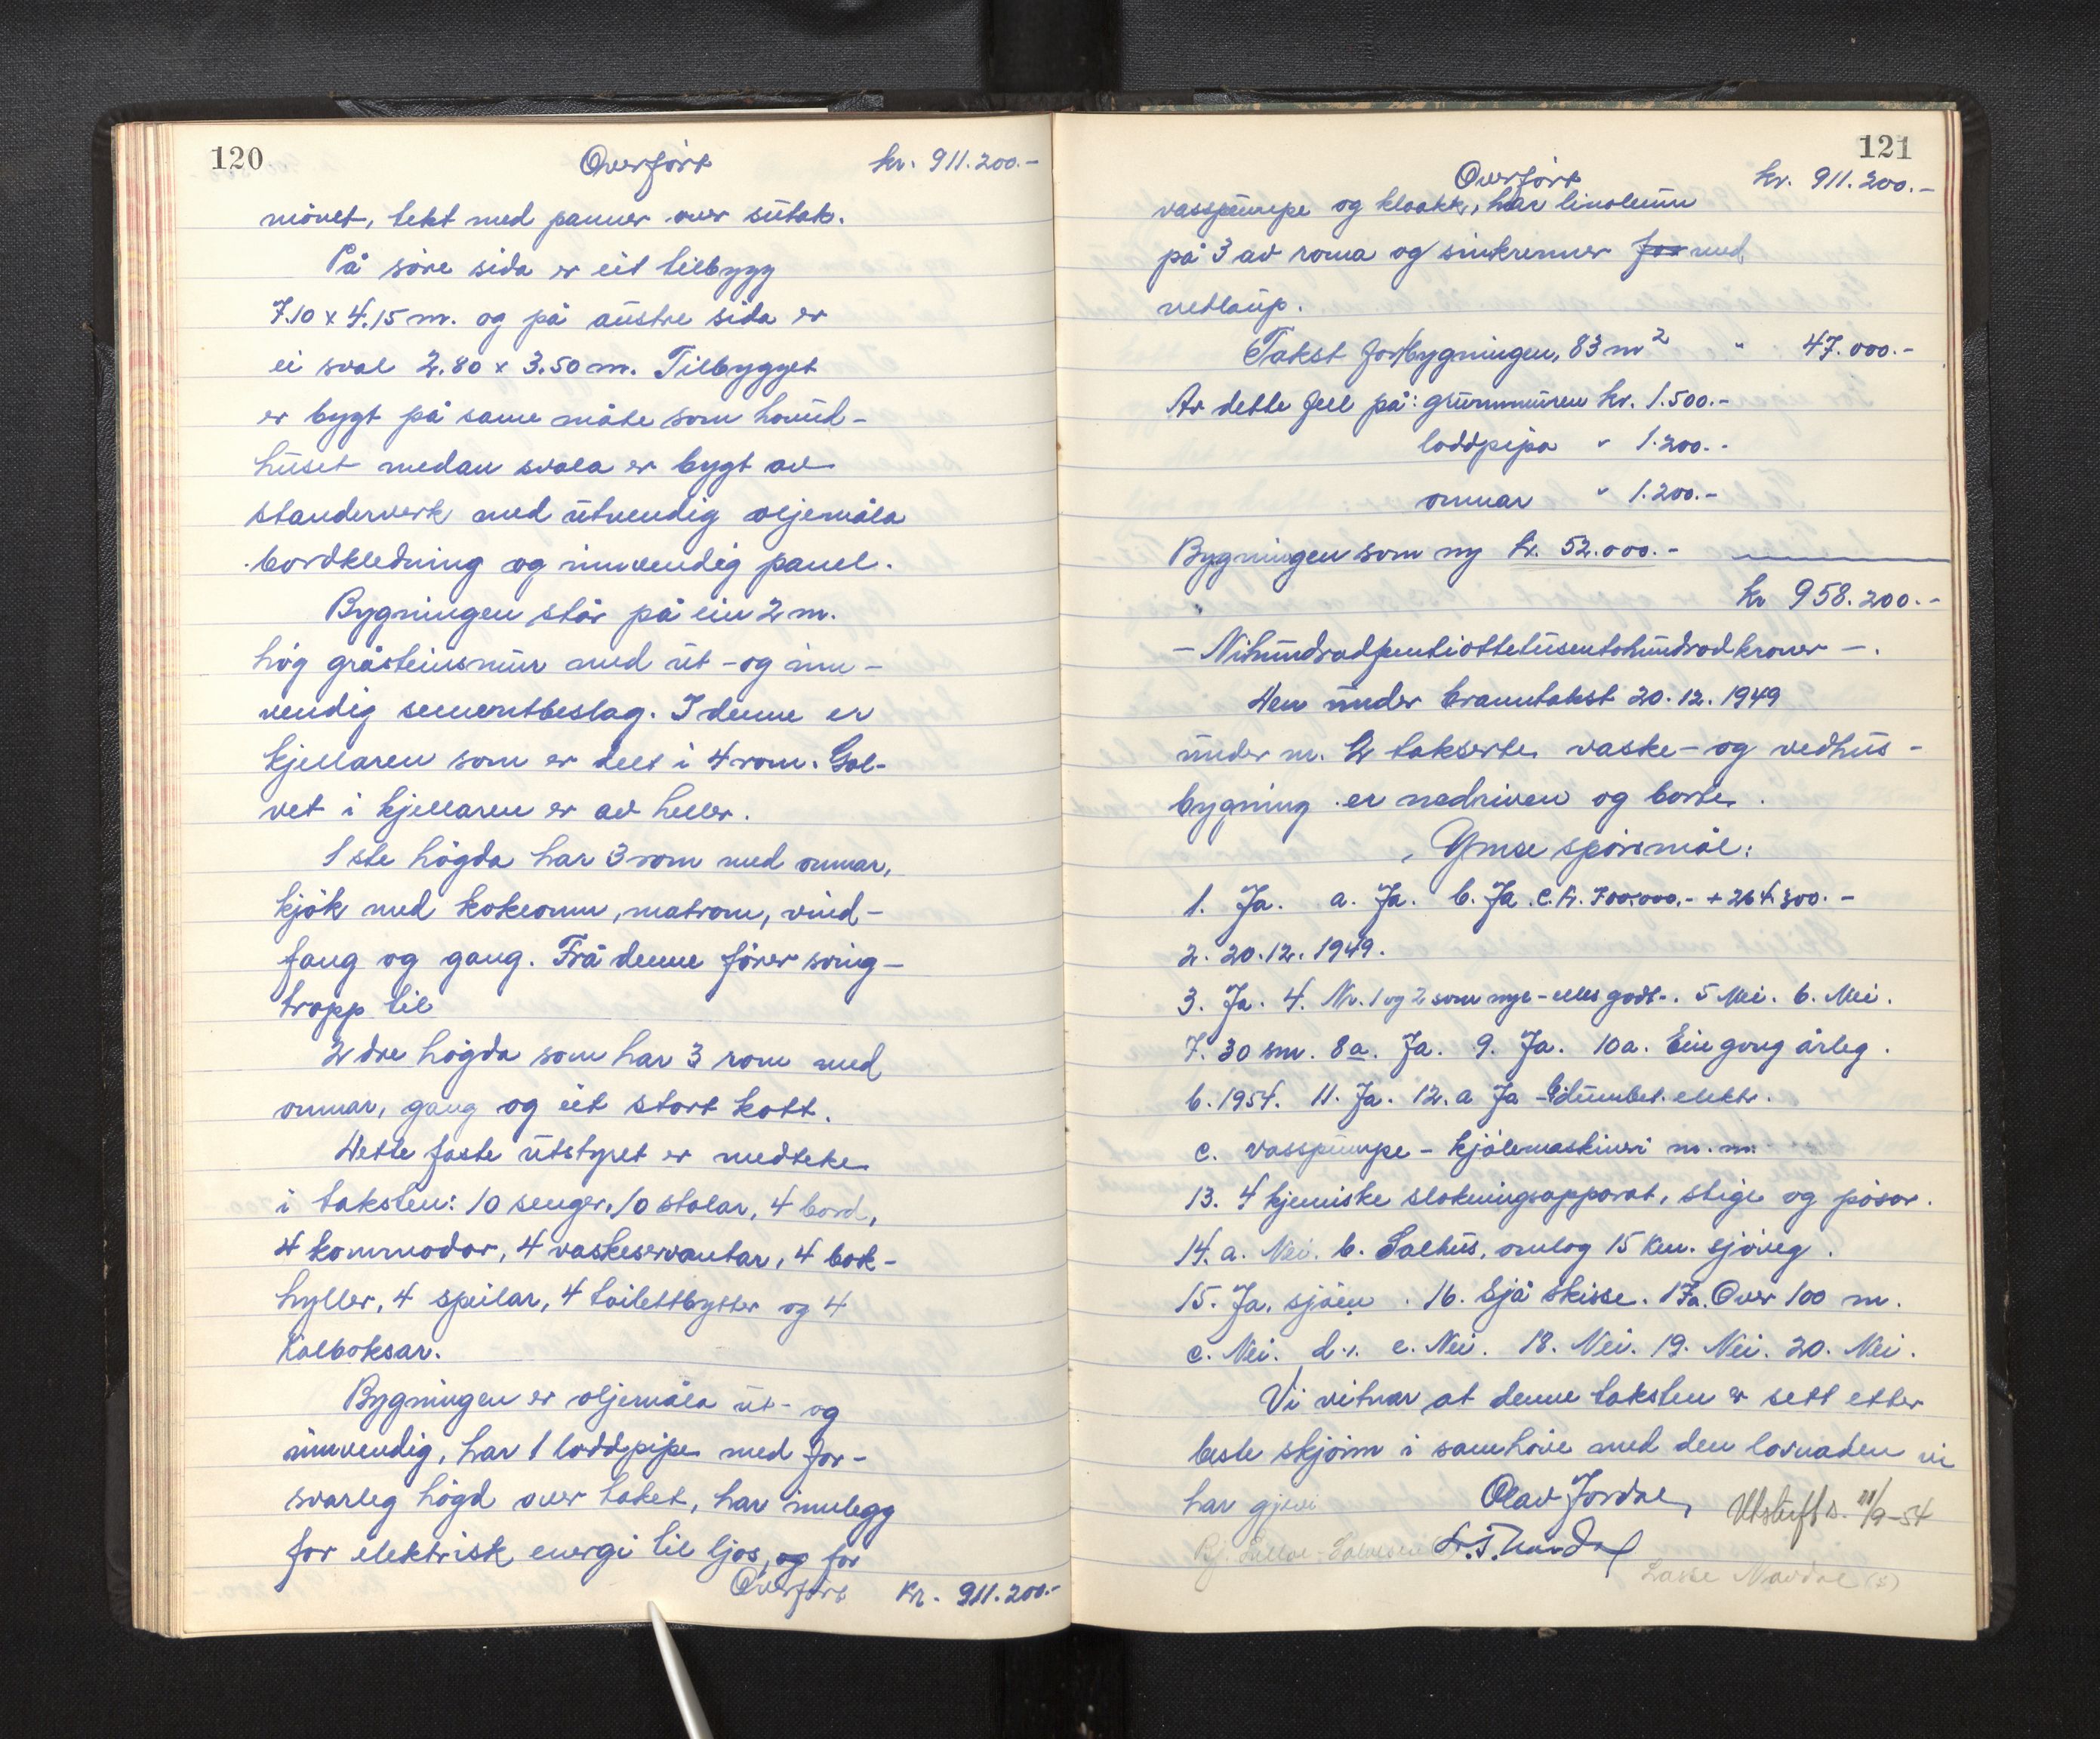 120
Overfört kr. 911.200.-
mönet, tekt med panner over sutak.
På söre sida er eit tilbygg
7.10 x 4.15 m. og på austre sida er
ei sval 2.80 x 3.50 m. Tilbygget
er bygt på same måte som hovud-
huset medan svala er bygt av
standerverk med utvendig oljemåla
bordkledning og innvendig panel.
Bygningen står på ein 2 m.
hög gråsteinsmur med ut- og inn-
vendig sementbeslag. I denne er
kjellaren som er delt i 4 rom. Gol-
vet i kjellaren er av heller.
1ste högda har 3 rom med omnar,
kjök med kokeomn, matrom, vind-
fang og gang. Frå denne förer sving-
tropp til
2dre högda som har 3 rom med
omnar, gang og eit stort kott.
Dette faste utstyret er medteke
i taksten: 10 senger, 10 stolar, 4 bord,
4 kommodar, 4 vaskeservantar, 4 bok-
hyller, 4 speilar, 4 toilettbytter og 4
Kolboksar.
Bygningen er oljemåla ut- og
innvendig, har 1 loddpipe med for-
svarleg högd over taket, har innlegg
for elektrisk energi til ljos, og for
Overfört Kr. 911.200.-
121
Overfört kr. 911.200.-
vasspumpe og kloakk, har linoleum
på 3 av roma og sinkrenner for med
nedlaup.
Takst for bygningen, 83 m2 " 47.000.-
Av dette fell på: grunnmuren kr. 1.500.-
loddpipa " 1.200.-
omnar " 1.200.-
Bygningen som ny kr. 52.000.-
kr 958.200.-
- Nihundradfemtiottetusentohundradkroner -.
Den under branntakst 20.12.1949
under nr. 2 takserte vaske- og vedhus-
bygning er nedriven og borte.
Ymse spörsmål:
1. Ja. a. Ja. b. Ja. c. kr. 700.000.- + 264.300.-
2. 20.12.1949.
3. Ja. 4. Nr. 1 og 2 som nye - elles godt-. 5 Nei. 6. Nei.
7. 30 sm. 8a. Ja. 9. Ja. 10a. Ein gong årleg.
b. 1954. 11. Ja. 12. a Ja - elektr.
c. vasspumpe - kjölemaskineri m.m.
13. 4 kjemiske slokningsapparat, stige og pösar.
14. a. Nei. b. Salhus, omlag 15 km. sjöveg.
15. Ja, sjöen. 16. Sjå skisse. 17a. Over 100 m.
c. Nei. d. -. e. Nei. 18. Nei. 19. Nei. 20. Nei.
Vi vitnar at denne taksten er sett etter
beste skjönn i samhöve med den lovnaden vi
har gjevi
Olav Jordal, Utskrift s. 21/9-54
Lasse Navdal (s)